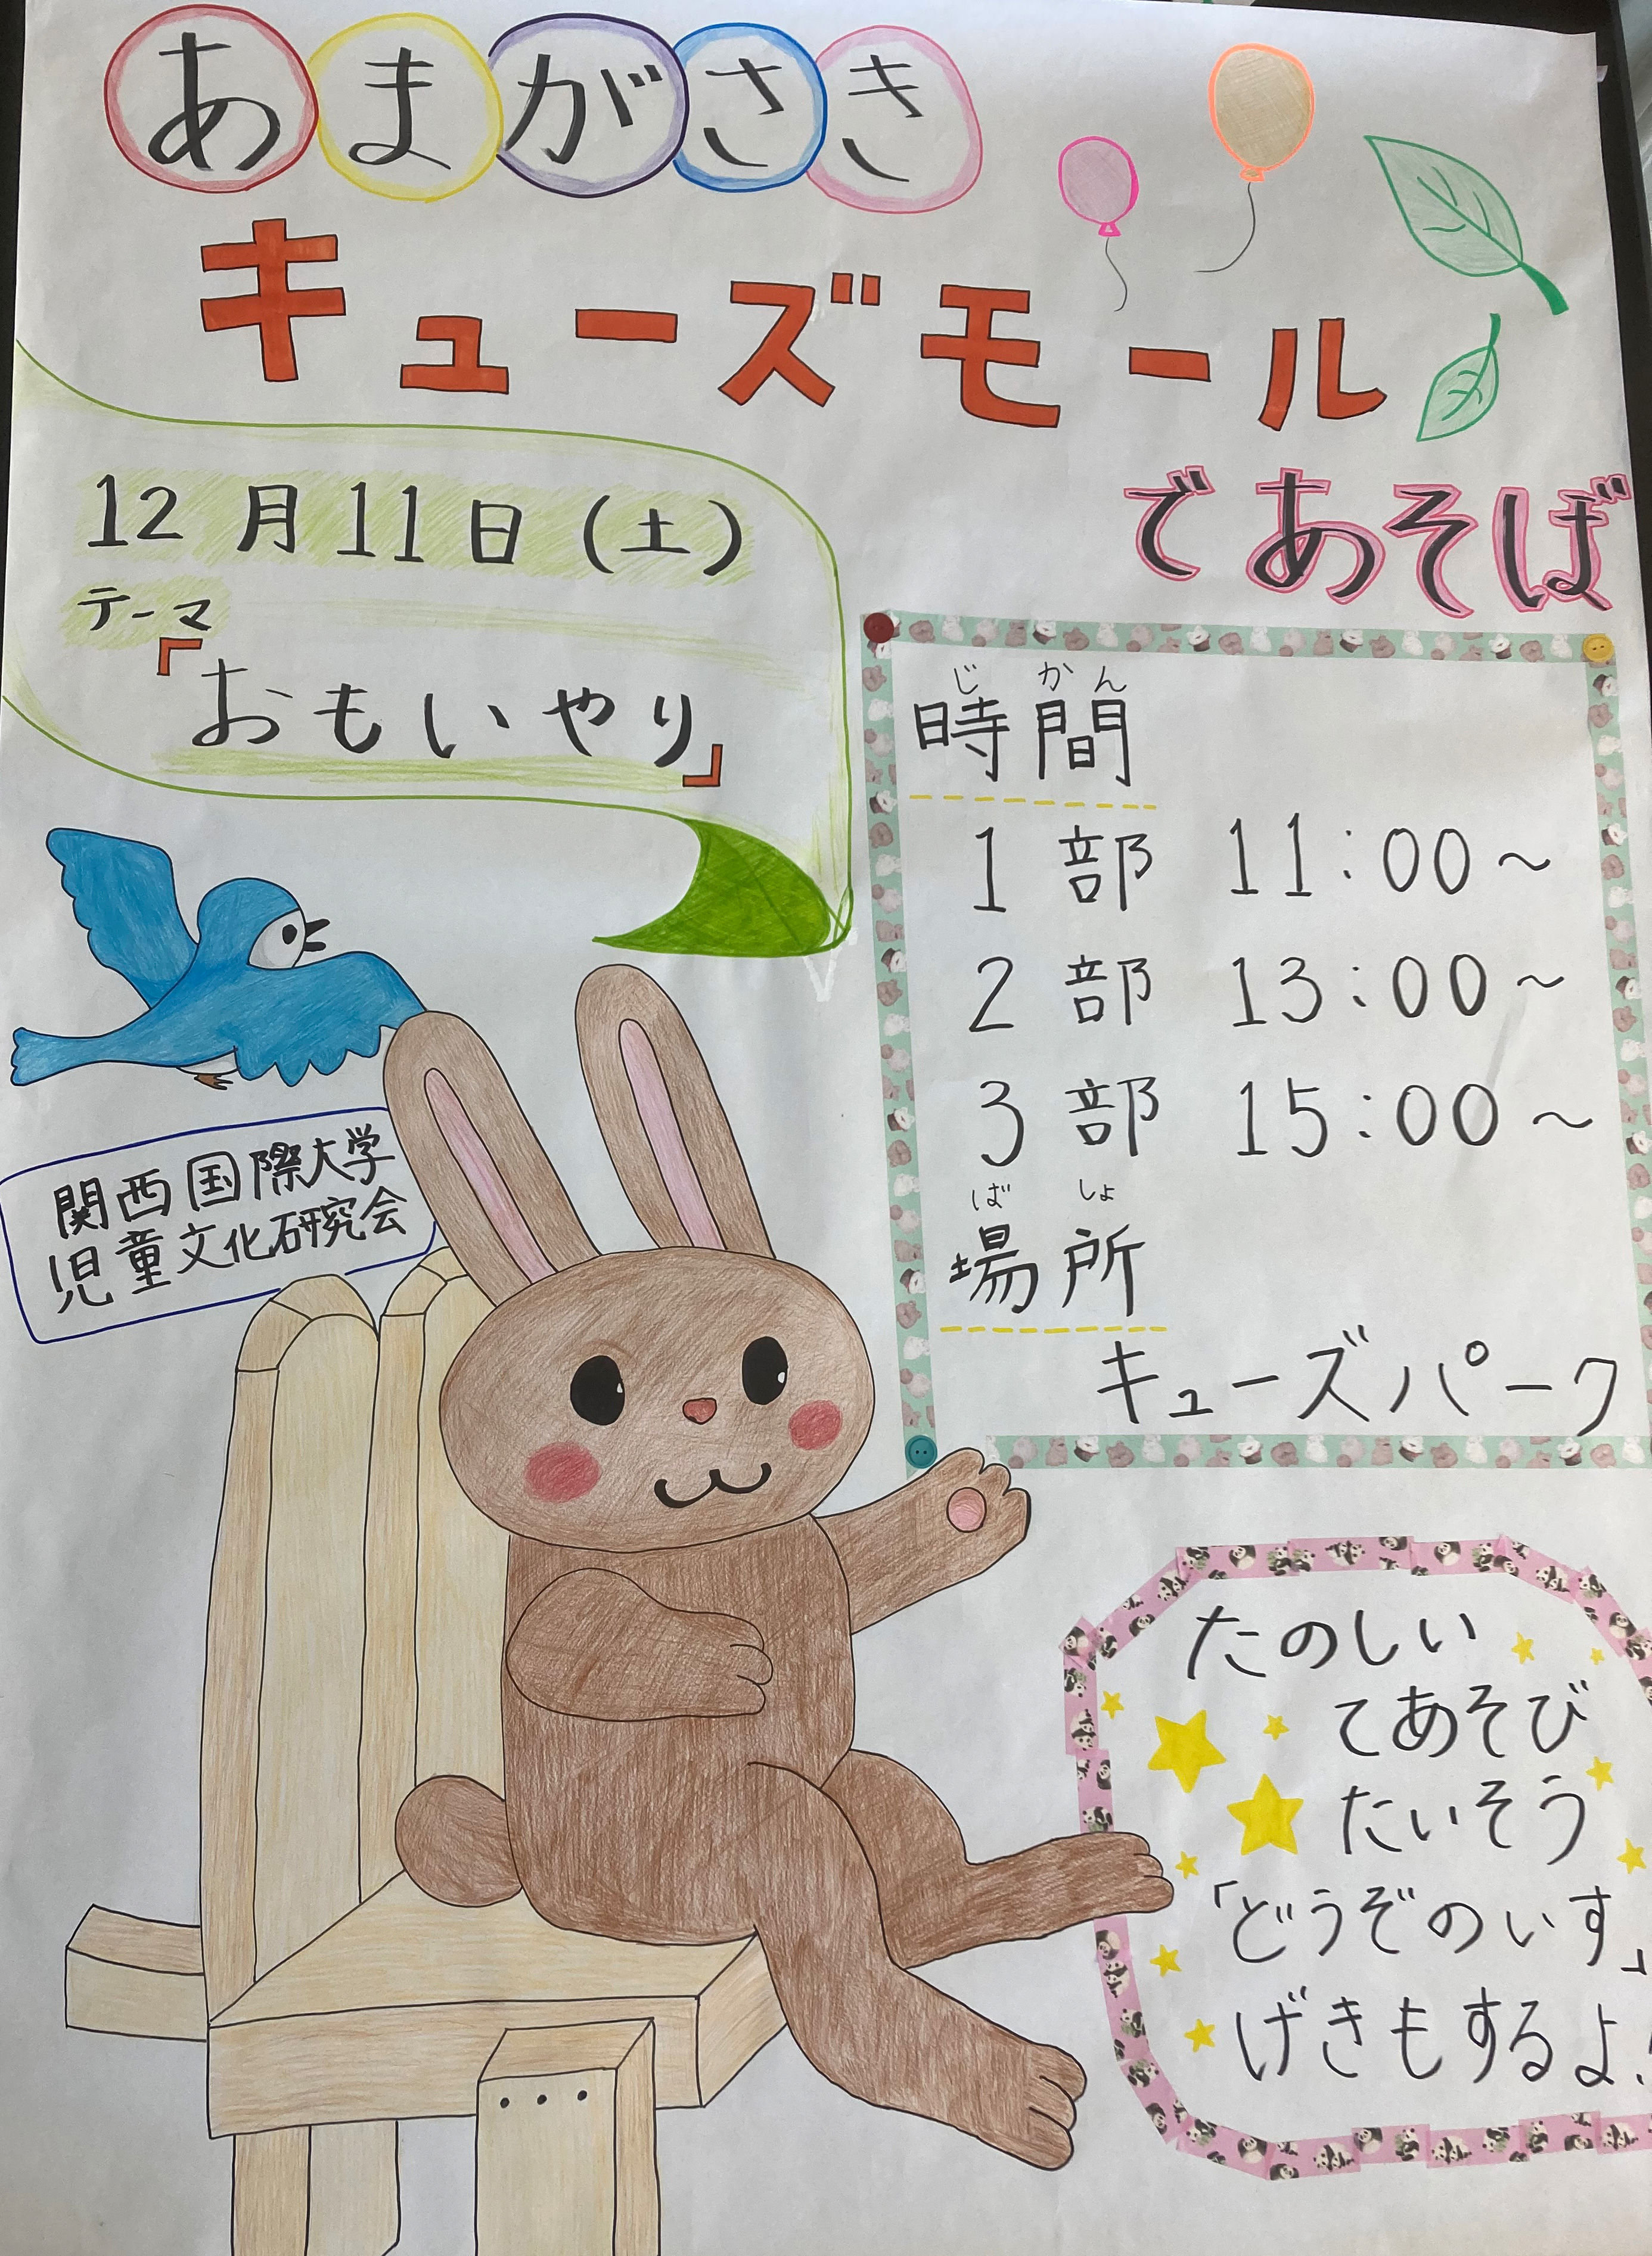 あまがさき
キューズモール
であそぼ
12月11日(土)
テーマ
「おもいやり」
じかん
時間
1部 11:00~
2部 13:00~
3部 15:00~
ばしょ
場所
キューズパーク
関西国際大学
児童文化研究会
たのしい
てあそび
たいそう
「どうぞのいす」
げきもするよ!